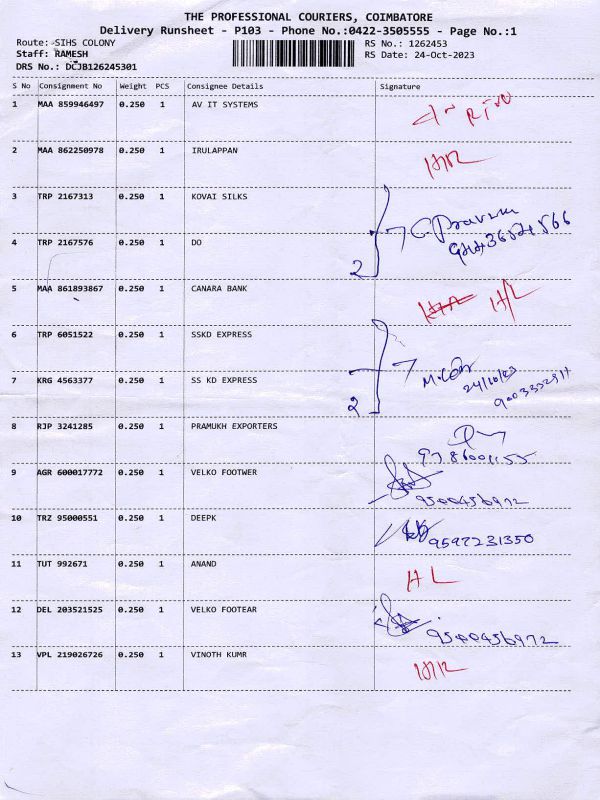 THE PROFESSIONAL COURIERS, COIMBATORE
Delivery Runsheet - P103 - Phone No.:0422-3505555 - Page No.:1
Route: SIHS COLONY RS No.: 1262453
Staff: RAMESH RS Date: 24-Oct-2023
DRS No.: DCJB126245301
S No Consignment No Weight PCS Consignee Details Signature
1 MAA 859946497 0.250 1 AV IT SYSTEMS
2 MAA 862250978 0.250 1 IRULAPPAN
3 TRP 2167313 0.250 1 KOVAI SILKS
4 TRP 2167576 0.250 1 DO 2
5 MAA 861893867 0.250 1 CANARA BANK H/L
6 TRP 6051522 0.250 1 SSKD EXPRESS
7 KRG 4563377 0.250 1 SS KD EXPRESS 2 24/10/23
8 RJP 3241285 0.250 1 PRAMUKH EXPORTERS
9786001155
9 AGR 600017772 0.250 1 VELKO FOOTWER
9500456972
10 TRZ 95000551 0.250 1 DEEPK 9597231350
11 TUT 992671 0.250 1 ANAND HL
12 DEL 203521525 0.250 1 VELKO FOOTEAR
9500456972
13 VPL 219026726 0.250 1 VINOTH KUMR